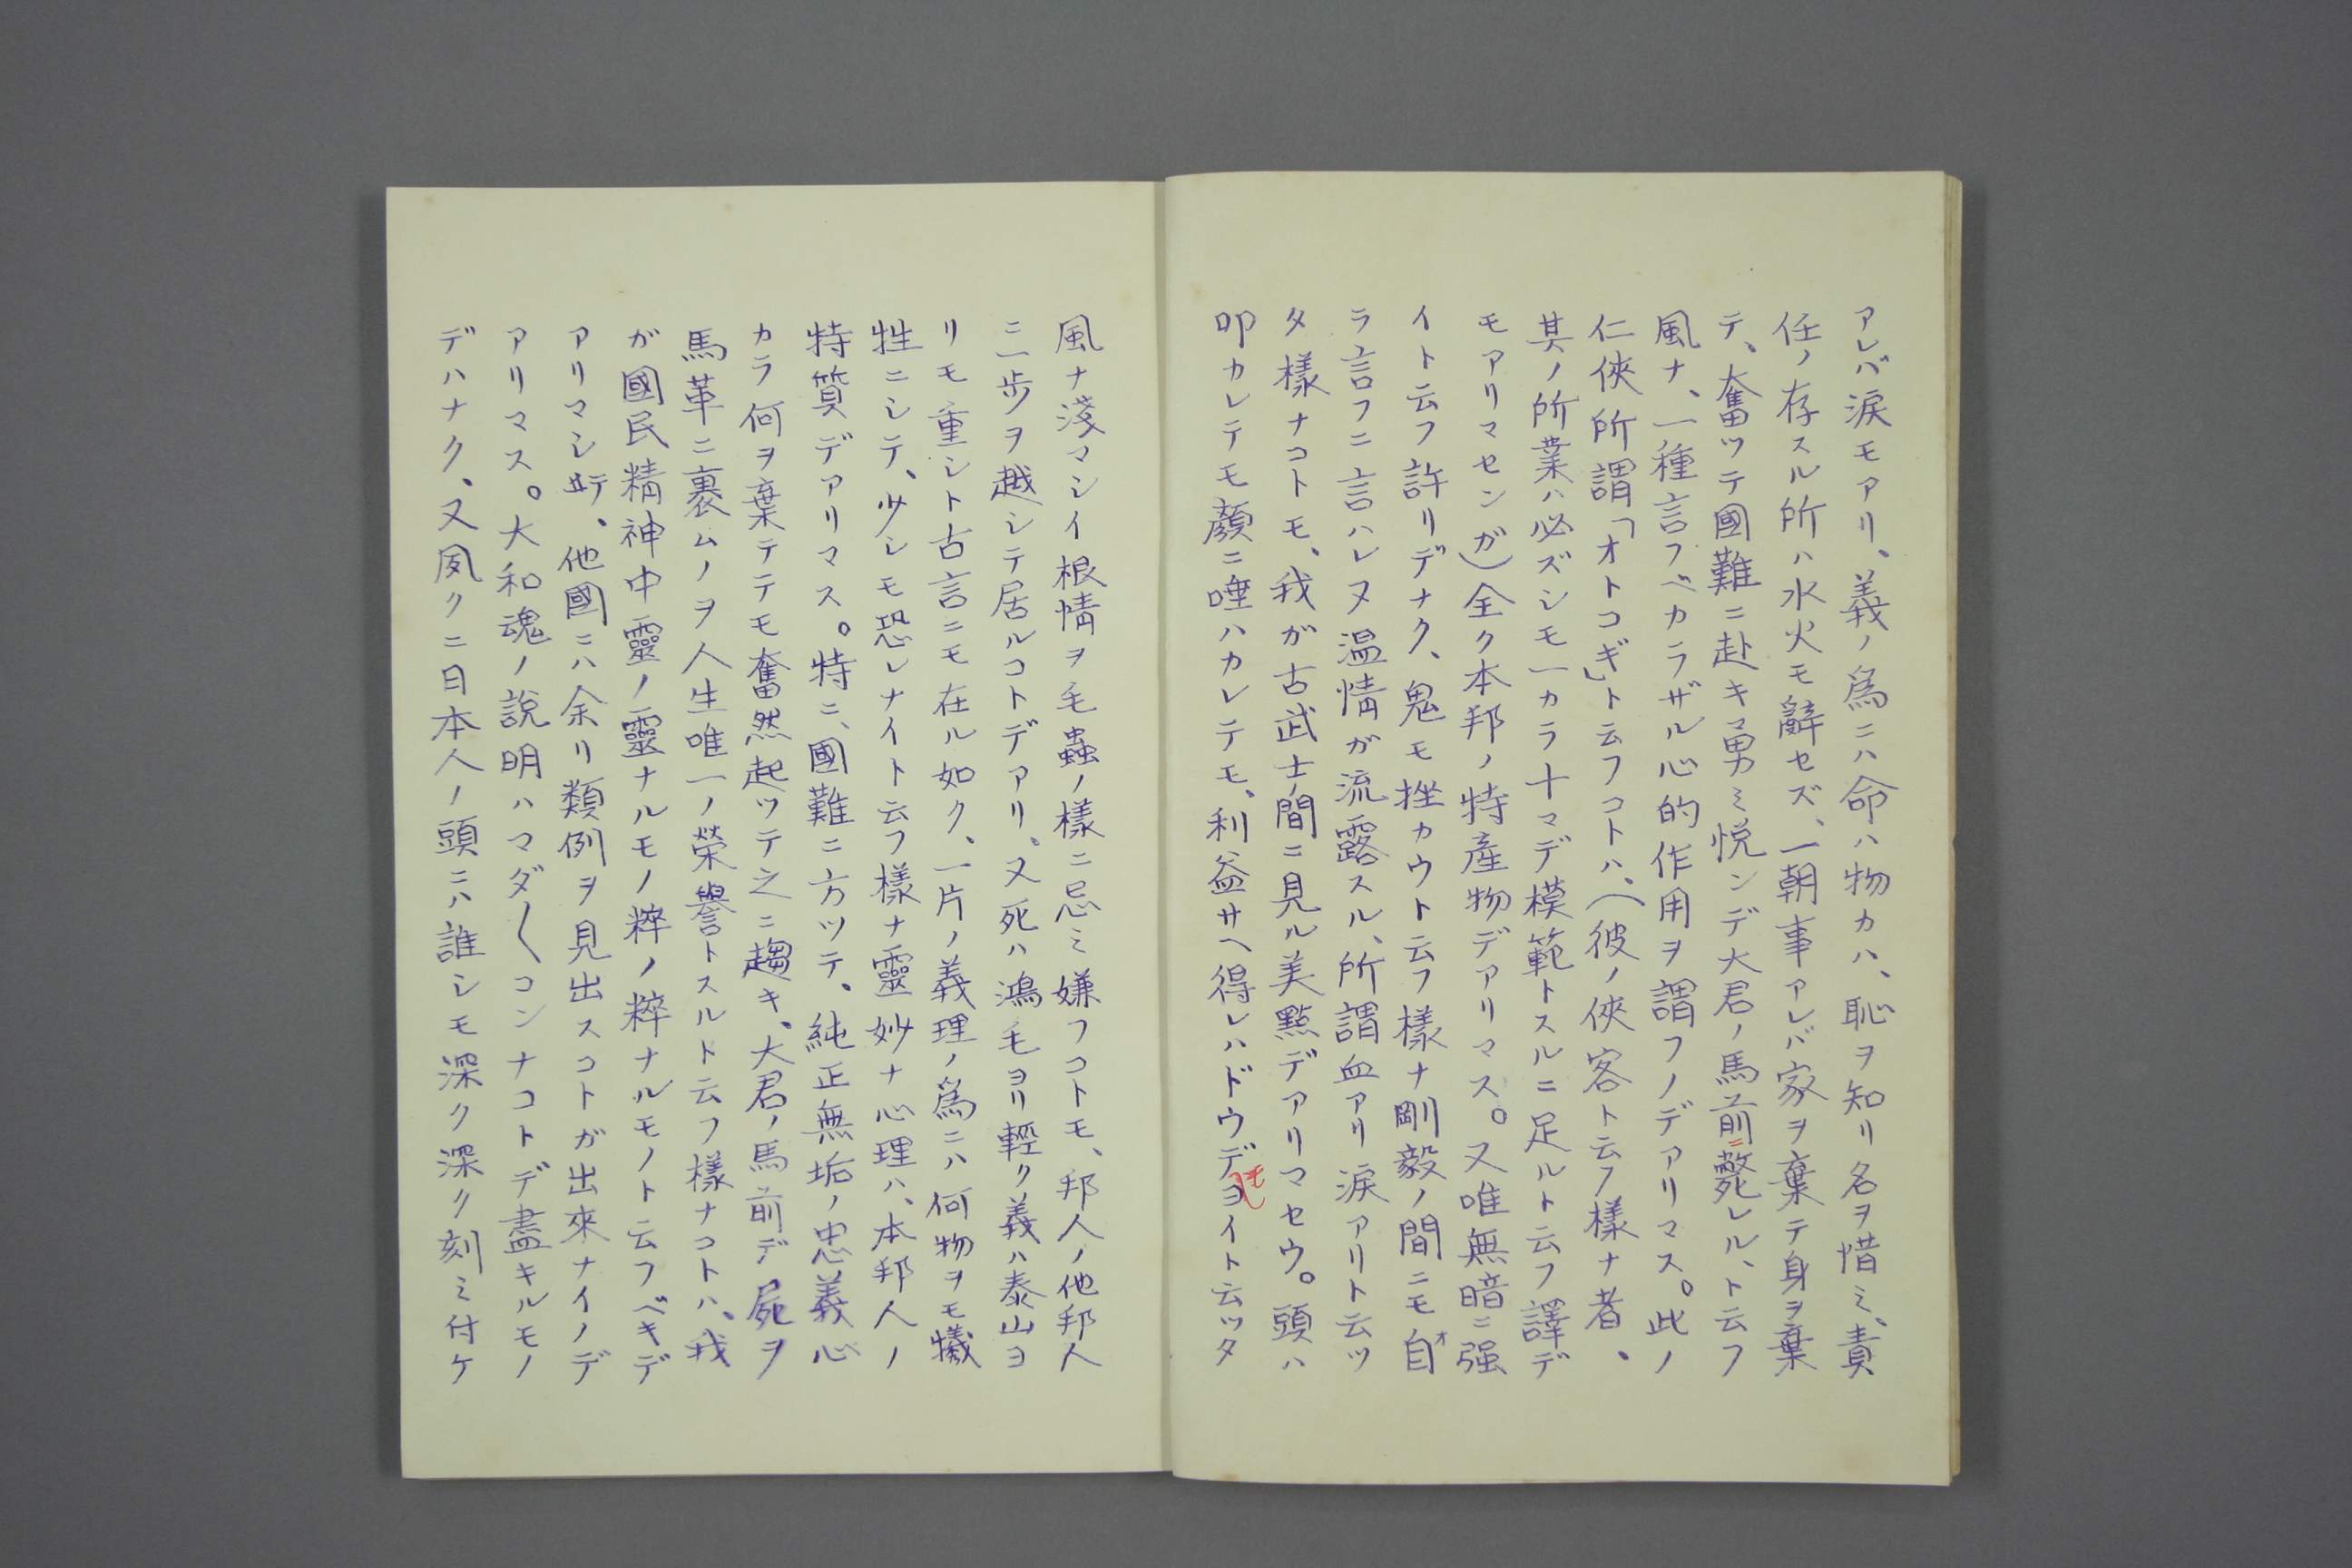 アレバ涙モアリ、義ノ爲ニハ命ハ物カハ、恥ヲ知リ名ヲ惜ミ、責
任ノ存スル所ハ水火モ辭セズ、一朝事アレバ家ヲ棄テ身ヲ棄
テ、奮ツテ國難ニ赴キ勇ミ悦ンデ大君ノ馬前ニ斃レル、ト云フ
風ナ、一種言フベカラザル心的作用ヲ謂フノデアリマス。此ノ
仁俠所謂「オトコギ」ト云フコトハ、(彼ノ俠客ト云フ樣ナ者、
其ノ所業ハ必ズシモ一カラ十マデ模範トスルニ足ルト云フ譯デ
モアリマセンガ)全ク本邦ノ特産物デアリマス。又唯無暗ニ强
イト云フ許リデナク、鬼モ挫カウト云フ樣ナ剛毅ノ間ニモ自オ
ラ言フニ言ハレヌ温情ガ流露スル、所謂血アリ涙アリト云ツ
タ樣ナコトモ、我ガ古武士ノ間ニ見ル美點デアリマセウ。頭ハ
叩カレテモ顔ニ唾ハカレテモ、利益サヘ得レハドウデモヨイト云ッタ
風ナ淺マシイ根情ヲ毛蟲ノ樣ニ忌ミ嫌フコトモ、邦人ノ他邦人
ニ一歩ヲ越シテ居ルコトデアリ、又死ハ鴻毛ヨリ輕ク義ハ泰山ヨ
リモ重シト古言ニモ在ル如ク、一片ノ義理ノ爲ニハ何物ヲモ犠
牲ニシテ、少シモ恐レナイト云フ樣ナ靈妙ナ心理ハ、本邦人ノ
特質デアリマス。特ニ、國難ニ方ツテ、純正無垢ノ忠義心
カラ何ヲ棄テテモ奮然起ツテ之ニ趨キ、大君ノ馬前デ屍ヲ
馬革ニ裹ムノヲ人生唯一ノ榮譽トスルト云フ樣ナコトハ、我
ガ國民精神中靈ノ靈ナルモノ粹ノ粹ナルモノト云フベキデ
アリマシテ、他國ニハ余リ類例ヲ見出スコトガ出來ナイノデ
アリマス。大和魂ノ説明ハマダ〱コンナコトデ盡キルモノ
デハナク、又夙クニ日本人ノ頭ニハ誰シモ深ク深ク刻ミ付ケ